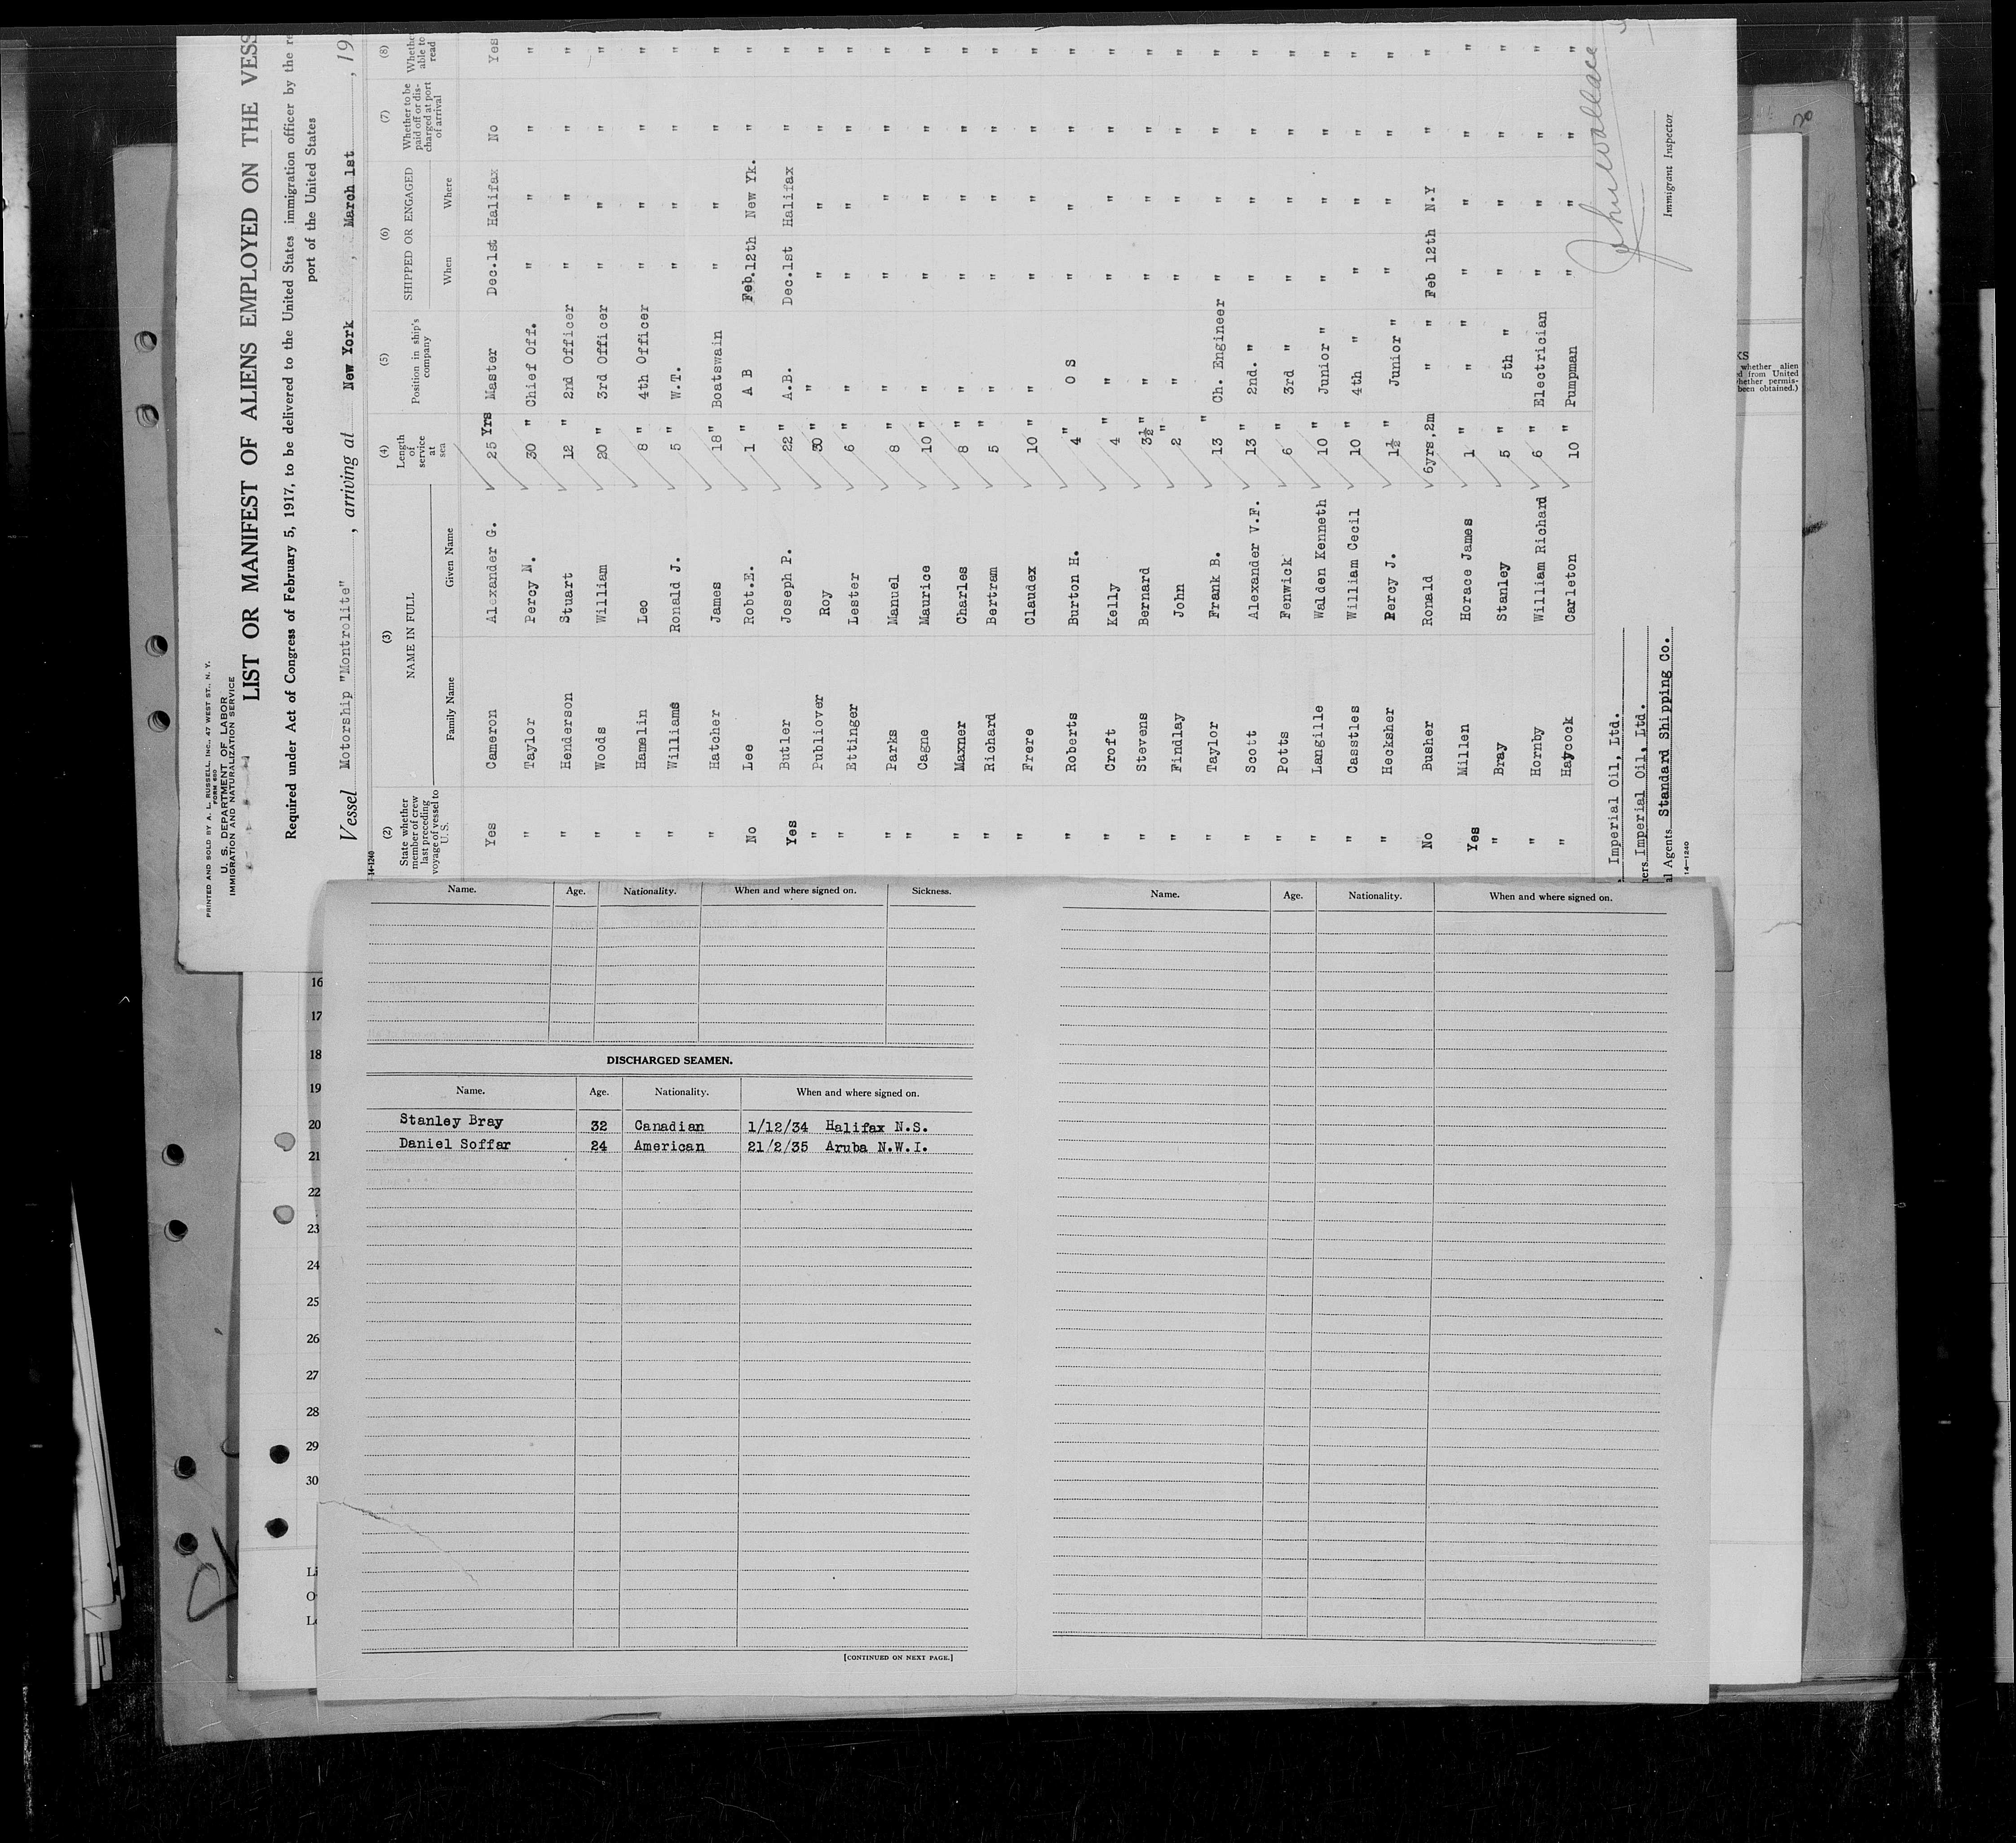 PRINTED AND SOLD BY A. L. RUSSELL, INC., 47 WEST ST., N. Y.
FORM 680
U. S. DEPARTMENT OF LABOR
IMMIGRATION AND NATURALIZATION SERVICE
LIST OR MANIFEST OF ALIENS EMPLOYED ON THE VESS
Required under Act of Congress of February 5, 1917, to be delivered to the United States immigration officer by the re
port of the United States
Vessel Motorship "Montrolite" , arriving at New York , March 1st , 19
14-1240
(2) (3) (4) (5) (6) (7) (8)
State whether member of crew last preceding voyage of vessel to U. S. NAME IN FULL Length of service at sea Position in ship's company SHIPPED OR ENGAGED Whether to be paid off or discharged at port of arrival Whether able to read
Family Name Given Name When Where
Yes Cameron Alexander G. 25 Yrs Master Dec.1st Halifax No Yes
" Taylor Percy N. 30 " Chief Off. " " " "
" Henderson Stuart 12 " 2nd Officer " " " "
" Woods William 20 " 3rd Officer " " " "
" Hamelin Leo 8 " 4th Officer " " " "
" Williams Ronald J. 5 " W.T. " " " "
" Hatcher James 18 " Boatswain " " " "
No Lee Robt.E. 1 " A B Feb.12th New Yk. " "
Yes Butler Joseph P. 22 " A.B. Dec.1st Halifax " "
" Publiover Roy 30 " " " " " "
" Ettinger Lester 6 " " " " " "
" Parks Manuel 8 " " " " " "
" Cagne Maurice 10 " " " " " "
" Maxner Charles 8 " " " " " "
" Richard Bertram 5 " " " " " "
" Frere Claudex 10 " " " " " "
" Roberts Burton H. 4 " O S " " " "
" Croft Kelly 4 " " " " " "
" Stevens Bernard 3½ " " " " " "
" Findlay John 2 " " " " " "
" Taylor Frank B. 13 " Ch. Engineer " " " "
" Scott Alexander V.F. 13 " 2nd. " " " " "
" Potts Fenwick 6 " 3rd " " " " "
" Langille Walden Kenneth 10 " Junior " " " " "
" Casstles William Cecil 10 " 4th " " " " "
" Hecksher Percy J. 1½ " Junior " " " " "
No Busher Ronald 6yrs,2m " " Feb 12th N.Y " "
Yes Millen Horace James 1 " " " " " " "
" Bray Stanley 5 " 5th " " " " "
" Hornby William Richard 6 " Electrician " " " "
" Haycock Carleton 10 " Pumpman " " " "
Imperial Oil, Ltd.
ners Imperial Oil, Ltd.
al Agents Standard Shipping Co.
14-1240
John Wallace
Immigrant Inspector
KS
whether alien
d from United
hether permis-
been obtained.)
Name. Age. Nationality. When and where signed on. Sickness.
DISCHARGED SEAMEN.
Name. Age. Nationality. When and where signed on.
Stanley Bray 32 Canadian 1/12/34 Halifax N.S.
Daniel Soffar 24 American 21/2/35 Aruba N.W.I.
[CONTINUED ON NEXT PAGE.]
Name. Age. Nationality. When and where signed on.
16
17
18
19
20
21
22
23
24
25
26
27
28
29
30
Li
O